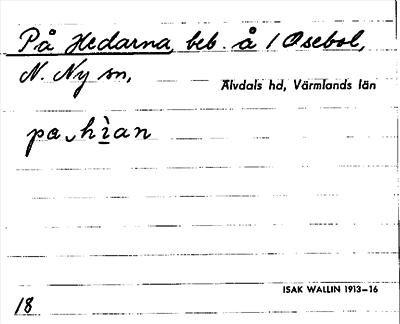 På Hedarna, beb. å 1 Osebol,
N. Ny sn,
Älvdals hd, Värmlands län
pa‿hìan
ISAK WALLIN 1913–16
18